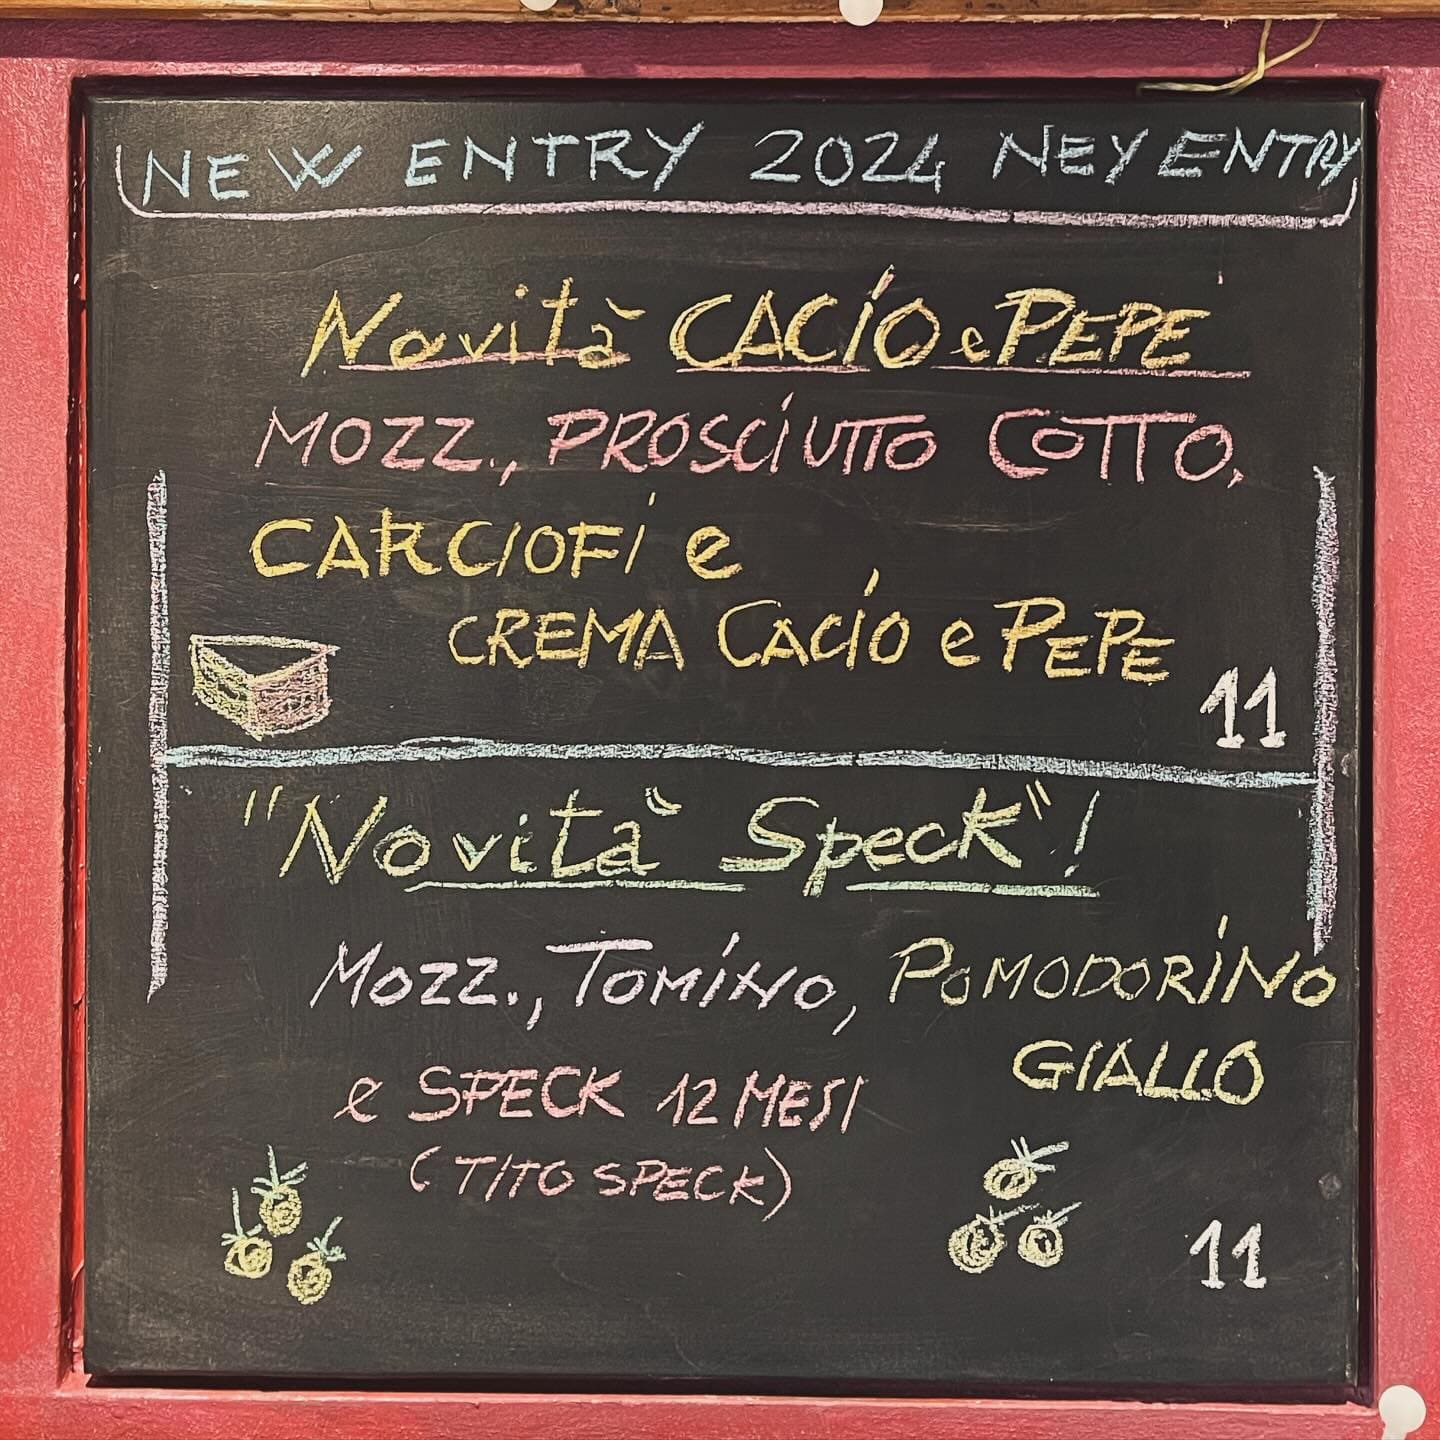 NEW ENTRY 2024 NEY ENTRY
Novità CACIO e PEPE
MOZZ., PROSCIUTTO COTTO,
CARCIOFI e
CREMA CACIO e PEPE
11
"Novità Speck"!
MOZZ., TOMINO, POMODORINO
GIALLO
e SPECK 12 MESI
(TITO SPECK)
11